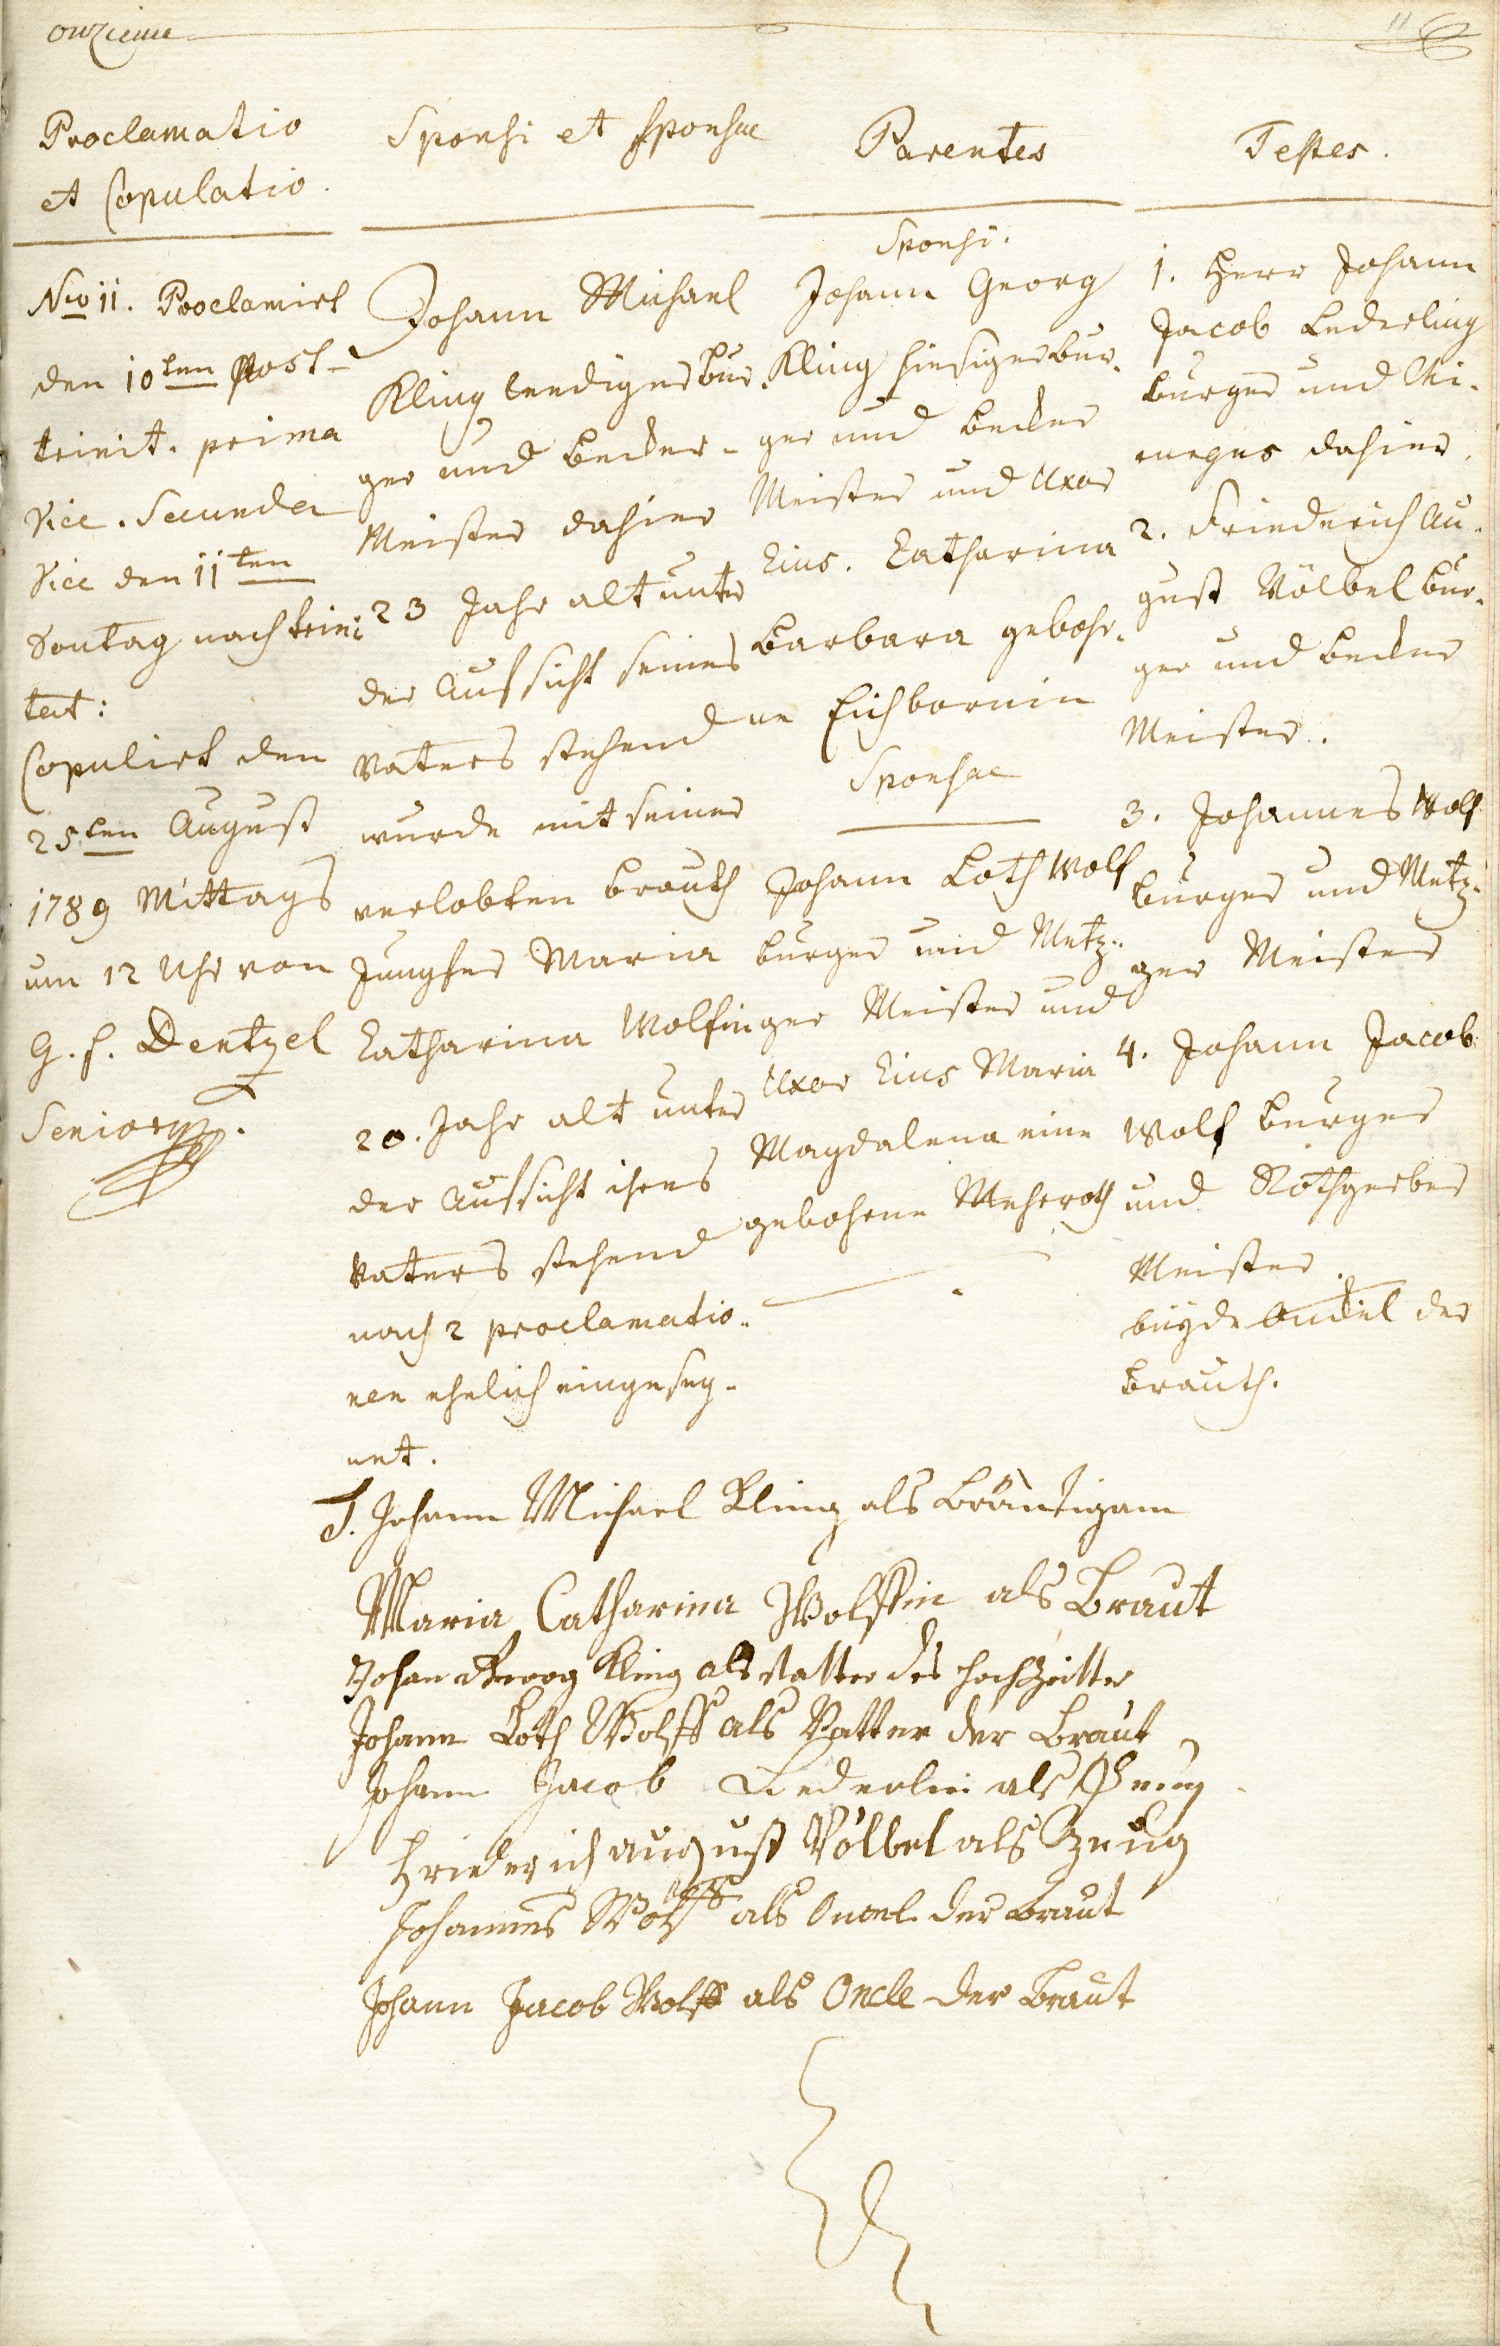 onzieme
11
Proclamatio
et Copulatio.
No 11. Proclamirt
den 10ten post
trinit. prima
Vice. Secunda
Vice den 11ten
Sontag nach trini
tat:
Copulirt den
25ten August
1789 Mittags
um 12 Uhr von
G. f. Dentzel
Senior
Sponsi et Sponsae
Johann Michael
Kling leediger bur
ger und Becker-
Meister dahier
23 Jahr alt unter
der Aufsicht seines
Vaters stehend
wurde mit seiner
verlobten Brauth
Jungfer Maria
Catharina Wolfin
20. Jahr alt unter
der Aufsicht ihres
Vaters stehend
nach 2 proclamatio-
nen ehelich eingeseg-
net.
Parentes
Sponsi.
Johann Georg
Kling hiesiger Bur-
ger und Becker
Meister und Uxor
Eius. Catharina
Barbara gebohr-
ne Eichbornin
Sponsae
Johann Loth Wolf
Burger und Metz-
ger Meister und
Uxor Eius Maria
Magdalena eine
gebohrne Mehrroth
Testes.
1. Herr Johann
Jacob Lederling
Burger und Chi-
rurgus dahier.
2. Friederich Au-
gust Völbel Bur-
ger und Becker
Meister.
3. Johannes Wolf
Burger und Metz-
ger Meister
4. Johann Jacob
Wolf Burger
und Rothgerber
Meister.
beyde Onckel der
Brauth.
Johann Michael Kling als Bräutigam
Maria Catharina Wolffin als Braut
Johan Georg Kling als Vatter des hochzeitter
Johann Loth Wolff als Vatter der Braut
Johann Jacob Lederlin als Zeug
Friederich august Völbel als Zeug
Johannes Wolff als Oncel der Braut
Johann Jacob Wolff als Oncle der Braut